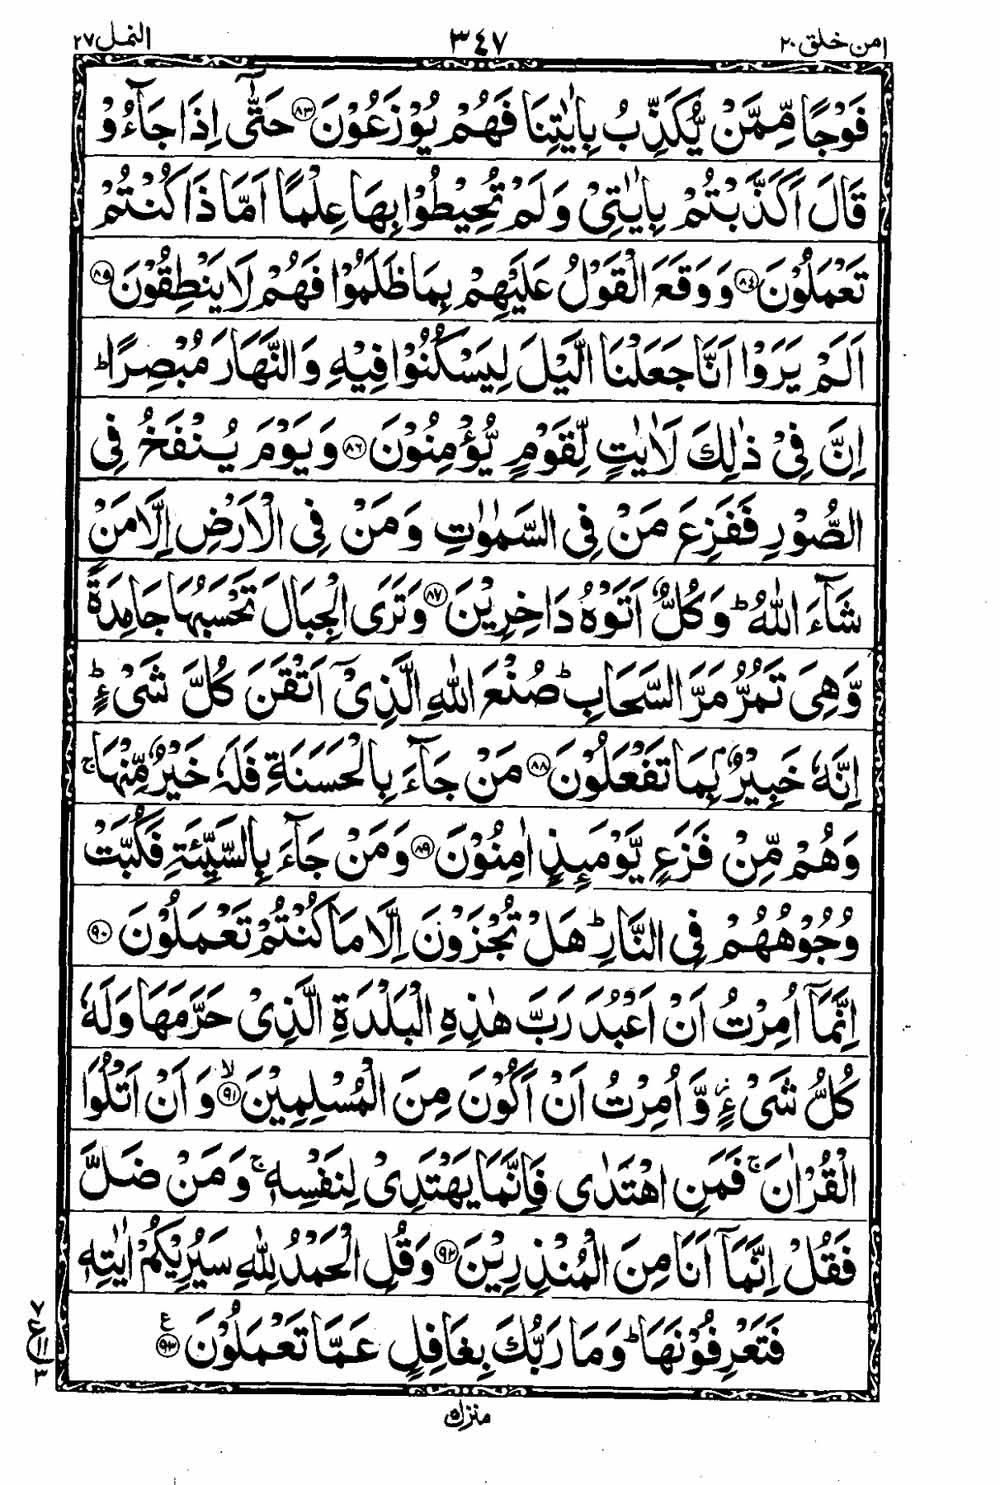 امن خلق ٢٠ ٣٤٧ النمل ٢٧
فَوْجًا مِّمَّنْ يُّكَذِّبُ بِاٰيٰتِنَا فَهُمْ يُوْزَعُوْنَ ﴿٨٣﴾ حَتّٰٓى اِذَا جَآءُوْ
قَالَ اَكَذَّبْتُمْ بِاٰيٰتِيْ وَلَمْ تُحِيْطُوْا بِهَا عِلْمًا اَمَّا ذَا كُنْتُمْ
تَعْمَلُوْنَ ﴿٨٤﴾ وَوَقَعَ الْقَوْلُ عَلَيْهِمْ بِمَا ظَلَمُوْا فَهُمْ لَا يَنْطِقُوْنَ ﴿٨٥﴾
اَلَمْ يَرَوْا اَنَّا جَعَلْنَا الَّيْلَ لِيَسْكُنُوْا فِيْهِ وَالنَّهَارَ مُبْصِرًا ؕ
اِنَّ فِيْ ذٰلِكَ لَاٰيٰتٍ لِّقَوْمٍ يُّؤْمِنُوْنَ ﴿٨٦﴾ وَيَوْمَ يُنْفَخُ فِي
الصُّوْرِ فَفَزِعَ مَنْ فِي السَّمٰوٰتِ وَمَنْ فِي الْاَرْضِ اِلَّا مَنْ
شَآءَ اللّٰهُ ؕ وَكُلٌّ اَتَوْهُ دَاخِرِيْنَ ﴿٨٧﴾ وَتَرَى الْجِبَالَ تَحْسَبُهَا جَامِدَةً
وَّهِيَ تَمُرُّ مَرَّ السَّحَابِ ؕ صُنْعَ اللّٰهِ الَّذِيْٓ اَتْقَنَ كُلَّ شَيْءٍ ؕ
اِنَّهٗ خَبِيْرٌۢ بِمَا تَفْعَلُوْنَ ﴿٨٨﴾ مَنْ جَآءَ بِالْحَسَنَةِ فَلَهٗ خَيْرٌ مِّنْهَا ۚ
وَهُمْ مِّنْ فَزَعٍ يَّوْمَىِٕذٍ اٰمِنُوْنَ ﴿٨٩﴾ وَمَنْ جَآءَ بِالسَّيِّئَةِ فَكُبَّتْ
وُجُوْهُهُمْ فِي النَّارِ ؕ هَلْ تُجْزَوْنَ اِلَّا مَا كُنْتُمْ تَعْمَلُوْنَ ﴿٩٠﴾
اِنَّمَآ اُمِرْتُ اَنْ اَعْبُدَ رَبَّ هٰذِهِ الْبَلْدَةِ الَّذِيْ حَرَّمَهَا وَلَهٗ
كُلُّ شَيْءٍ ز وَّاُمِرْتُ اَنْ اَكُوْنَ مِنَ الْمُسْلِمِيْنَ ۙ﴿٩١﴾ وَاَنْ اَتْلُوَا
الْقُرْاٰنَ ۚ فَمَنِ اهْتَدٰى فَاِنَّمَا يَهْتَدِيْ لِنَفْسِهٖ ۚ وَمَنْ ضَلَّ
فَقُلْ اِنَّمَآ اَنَا مِنَ الْمُنْذِرِيْنَ ﴿٩٢﴾ وَقُلِ الْحَمْدُ لِلّٰهِ سَيُرِيْكُمْ اٰيٰتِهٖ
فَتَعْرِفُوْنَهَا ؕ وَمَا رَبُّكَ بِغَافِلٍ عَمَّا تَعْمَلُوْنَ ع ﴿٩٣﴾
٧
ع ١١
٣
منزل ٥